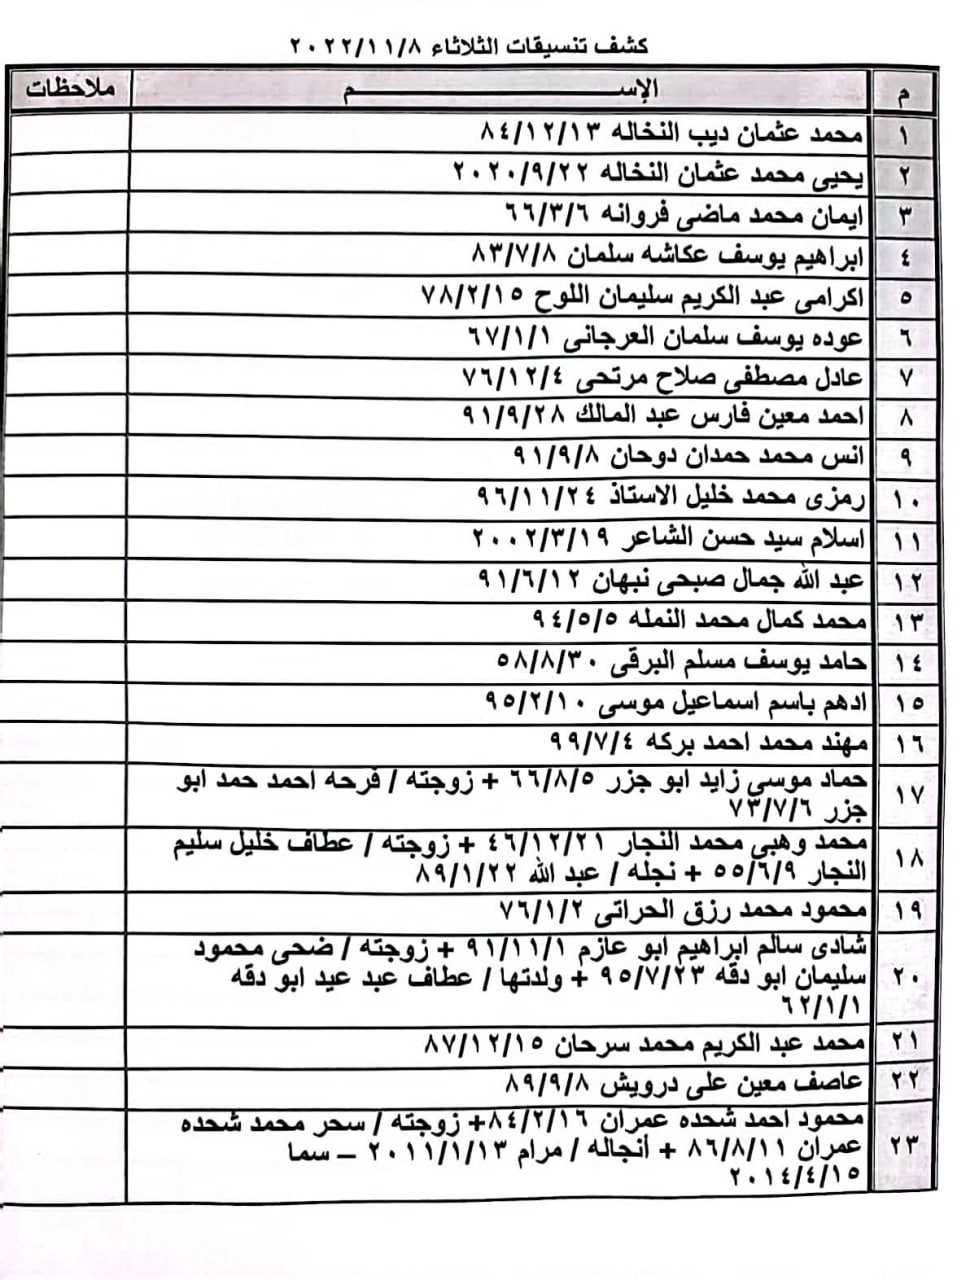 كشف تنسيقات الثلاثاء ٢٠٢٢/١١/٨
م الإســـــــم ملاحظات
١ محمد عثمان ديب النخاله ٨٤/١٢/١٣
٢ يحيى محمد عثمان النخاله ٢٠٢٠/٩/٢٢
٣ ايمان محمد ماضى فروانه ٦٦/٣/٦
٤ ابراهيم يوسف عكاشه سلمان ٨٣/٧/٨
٥ اكرامى عبد الكريم سليمان اللوح ٧٨/٢/١٥
٦ عوده يوسف سلمان العرجانى ٦٧/١/١
٧ عادل مصطفى صلاح مرتحى ٧٦/١٢/٤
٨ احمد معين فارس عبد المالك ٩١/٩/٢٨
٩ انس محمد حمدان دوحان ٩١/٩/٨
١٠ رمزى محمد خليل الاستاذ ٩٦/١١/٢٤
١١ اسلام سيد حسن الشاعر ٢٠٠٢/٣/١٩
١٢ عبد الله جمال صبحى نبهان ٩١/٦/١٢
١٣ محمد كمال محمد النمله ٩٤/٥/٥
١٤ حامد يوسف مسلم البرقى ٥٨/٨/٣٠
١٥ ادهم باسم اسماعيل موسى ٩٥/٢/١٠
١٦ مهند محمد احمد بركه ٩٩/٧/٤
١٧ حماد موسى زايد ابو جزر ٦٦/٨/٥ + زوجته / فرحه احمد حمد ابو
جزر ٧٣/٧/٦
١٨ محمد وهبى محمد النجار ٤٦/١٢/٢١ + زوجته / عطاف خليل سليم
النجار ٥٥/٦/٩ + نجله / عبد الله ٨٩/١/٢٢
١٩ محمود محمد رزق الحراتى ٧٦/١/٢
٢٠ شادى سالم ابراهيم ابو عازم ٩١/١١/١ + زوجته / ضحى محمود
سليمان ابو دقه ٩٥/٧/٢٣ + ولدتها / عطاف عبد عيد ابو دقه
٦٢/١/١
٢١ محمد عبد الكريم محمد سرحان ٨٧/١٢/١٥
٢٢ عاصف معين على درويش ٨٩/٩/٨
٢٣ محمود احمد شحده عمران ٨٤/٢/١٦+ زوجته / سحر محمد شحده
عمران ٨٦/٨/١١ + أنجاله / مرام ٢٠١١/١/١٣ – سما
٢٠١٤/٤/١٥